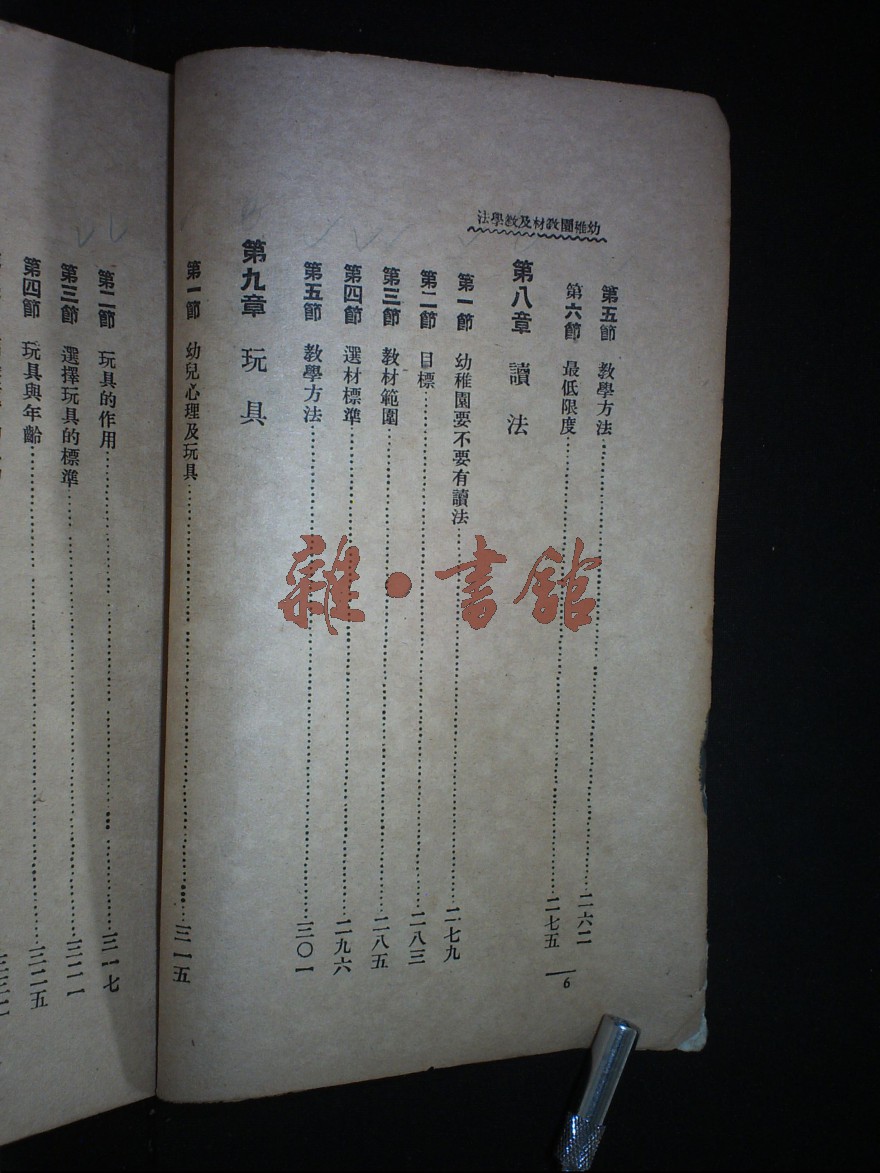 幼稚園教材及教學法
第五節 教學方法 二六二
第六節 最低限度 二七五
第八章 讀法
第一節 幼稚園要不要有讀法 二七九
第二節 目標 二八三
第三節 教材範圍 二八五
第四節 選材標準 二九六
第五節 教學方法 三〇一
第九章 玩具
第一節 幼兒心理及玩具 三一五
6
第二節 玩具的作用 三一七
第三節 選擇玩具的標準 三二一
第四節 玩具與年齡 三二五
雜·書館